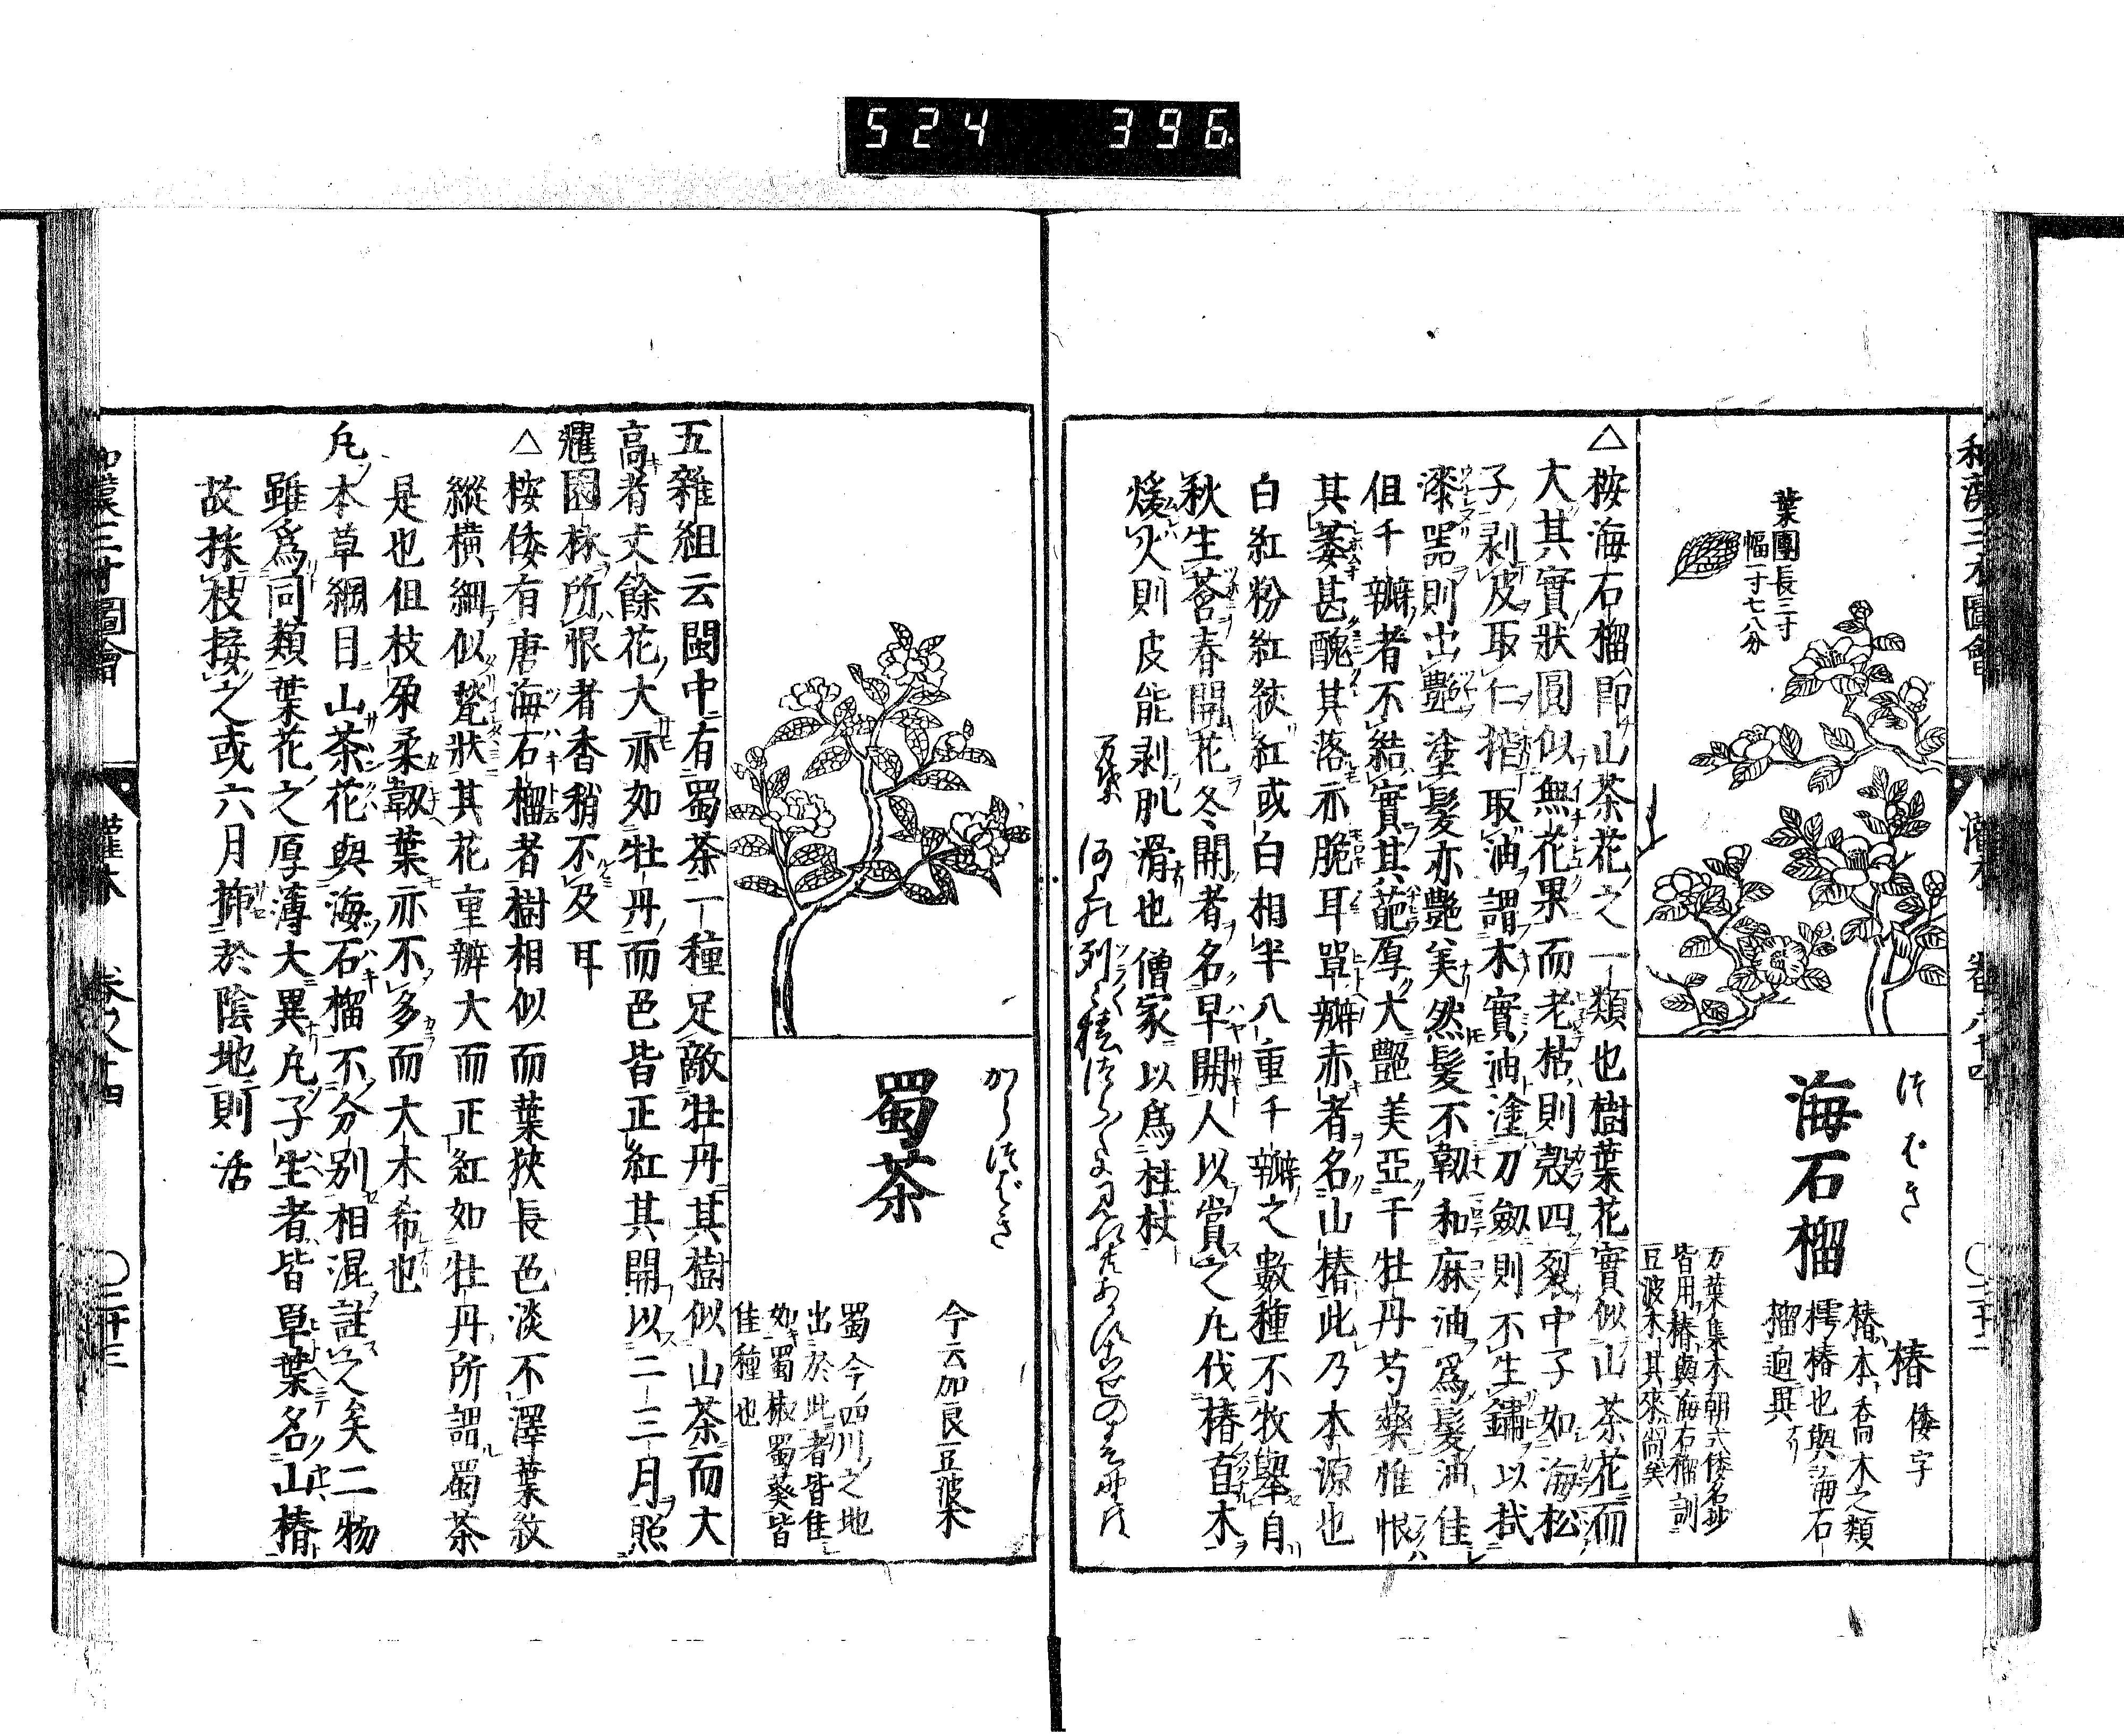 524 396
和漢三才圖會 灌木 卷八十四
葉團長三寸
幅一寸七八分
つばき
海石榴
椿 倭字
椿本喬木之類
樗椿也與海石
榴迥異
万葉集本朝式倭名抄
皆用椿與海石榴訓
豆波木其來尚矣
△桉海石榴即山茶花之一類也樹葉花實似山茶花而
大其實狀圓似無花果而老枯則殼四裂中子如海松
子剥皮取仁搾取油謂木實油塗刀劔則不生鏽以拭
漆噐則出艷塗髮亦艷美然髮不韌和麻油爲髮油佳
但千瓣者不結實其葩厚大艷美亞于牡丹芍藥惟恨
其萎甚醜其落亦脆耳單瓣赤者名山椿此乃本源也
白紅粉紅狹紅或白相半八重千瓣之數種不牧舉自
秋生莟春開花冬開者名早開人以賞之凢伐椿直木
煖火則皮能剥肌滑也僧家以爲柱杖
からつばき
蜀茶
今云加良豆波木
蜀今四川之地
出於此者皆佳
如蜀椒蜀葵皆
佳種也
五雜組云閩中有蜀茶一種足敵牡丹其樹似山茶而大
高者丈餘花大亦如牡丹而色皆正紅其開以二三月照
燿園林所恨者香稍不及耳
△桉倭有唐海石榴者樹相似而葉狹長色淡不澤葉紋
縱橫細似甃狀其花重瓣大而正紅如牡丹所謂蜀茶
是也但枝朶柔韌葉亦不多而大木希也
凢本草綱目山茶花與海石榴不分别相混註之矣二物
雖爲同類葉花之厚薄大異凢子生者皆單葉名山椿
故採枝接之或六月揷於陰地則活
和漢三才圖會 灌木 卷八十四 〇二十三